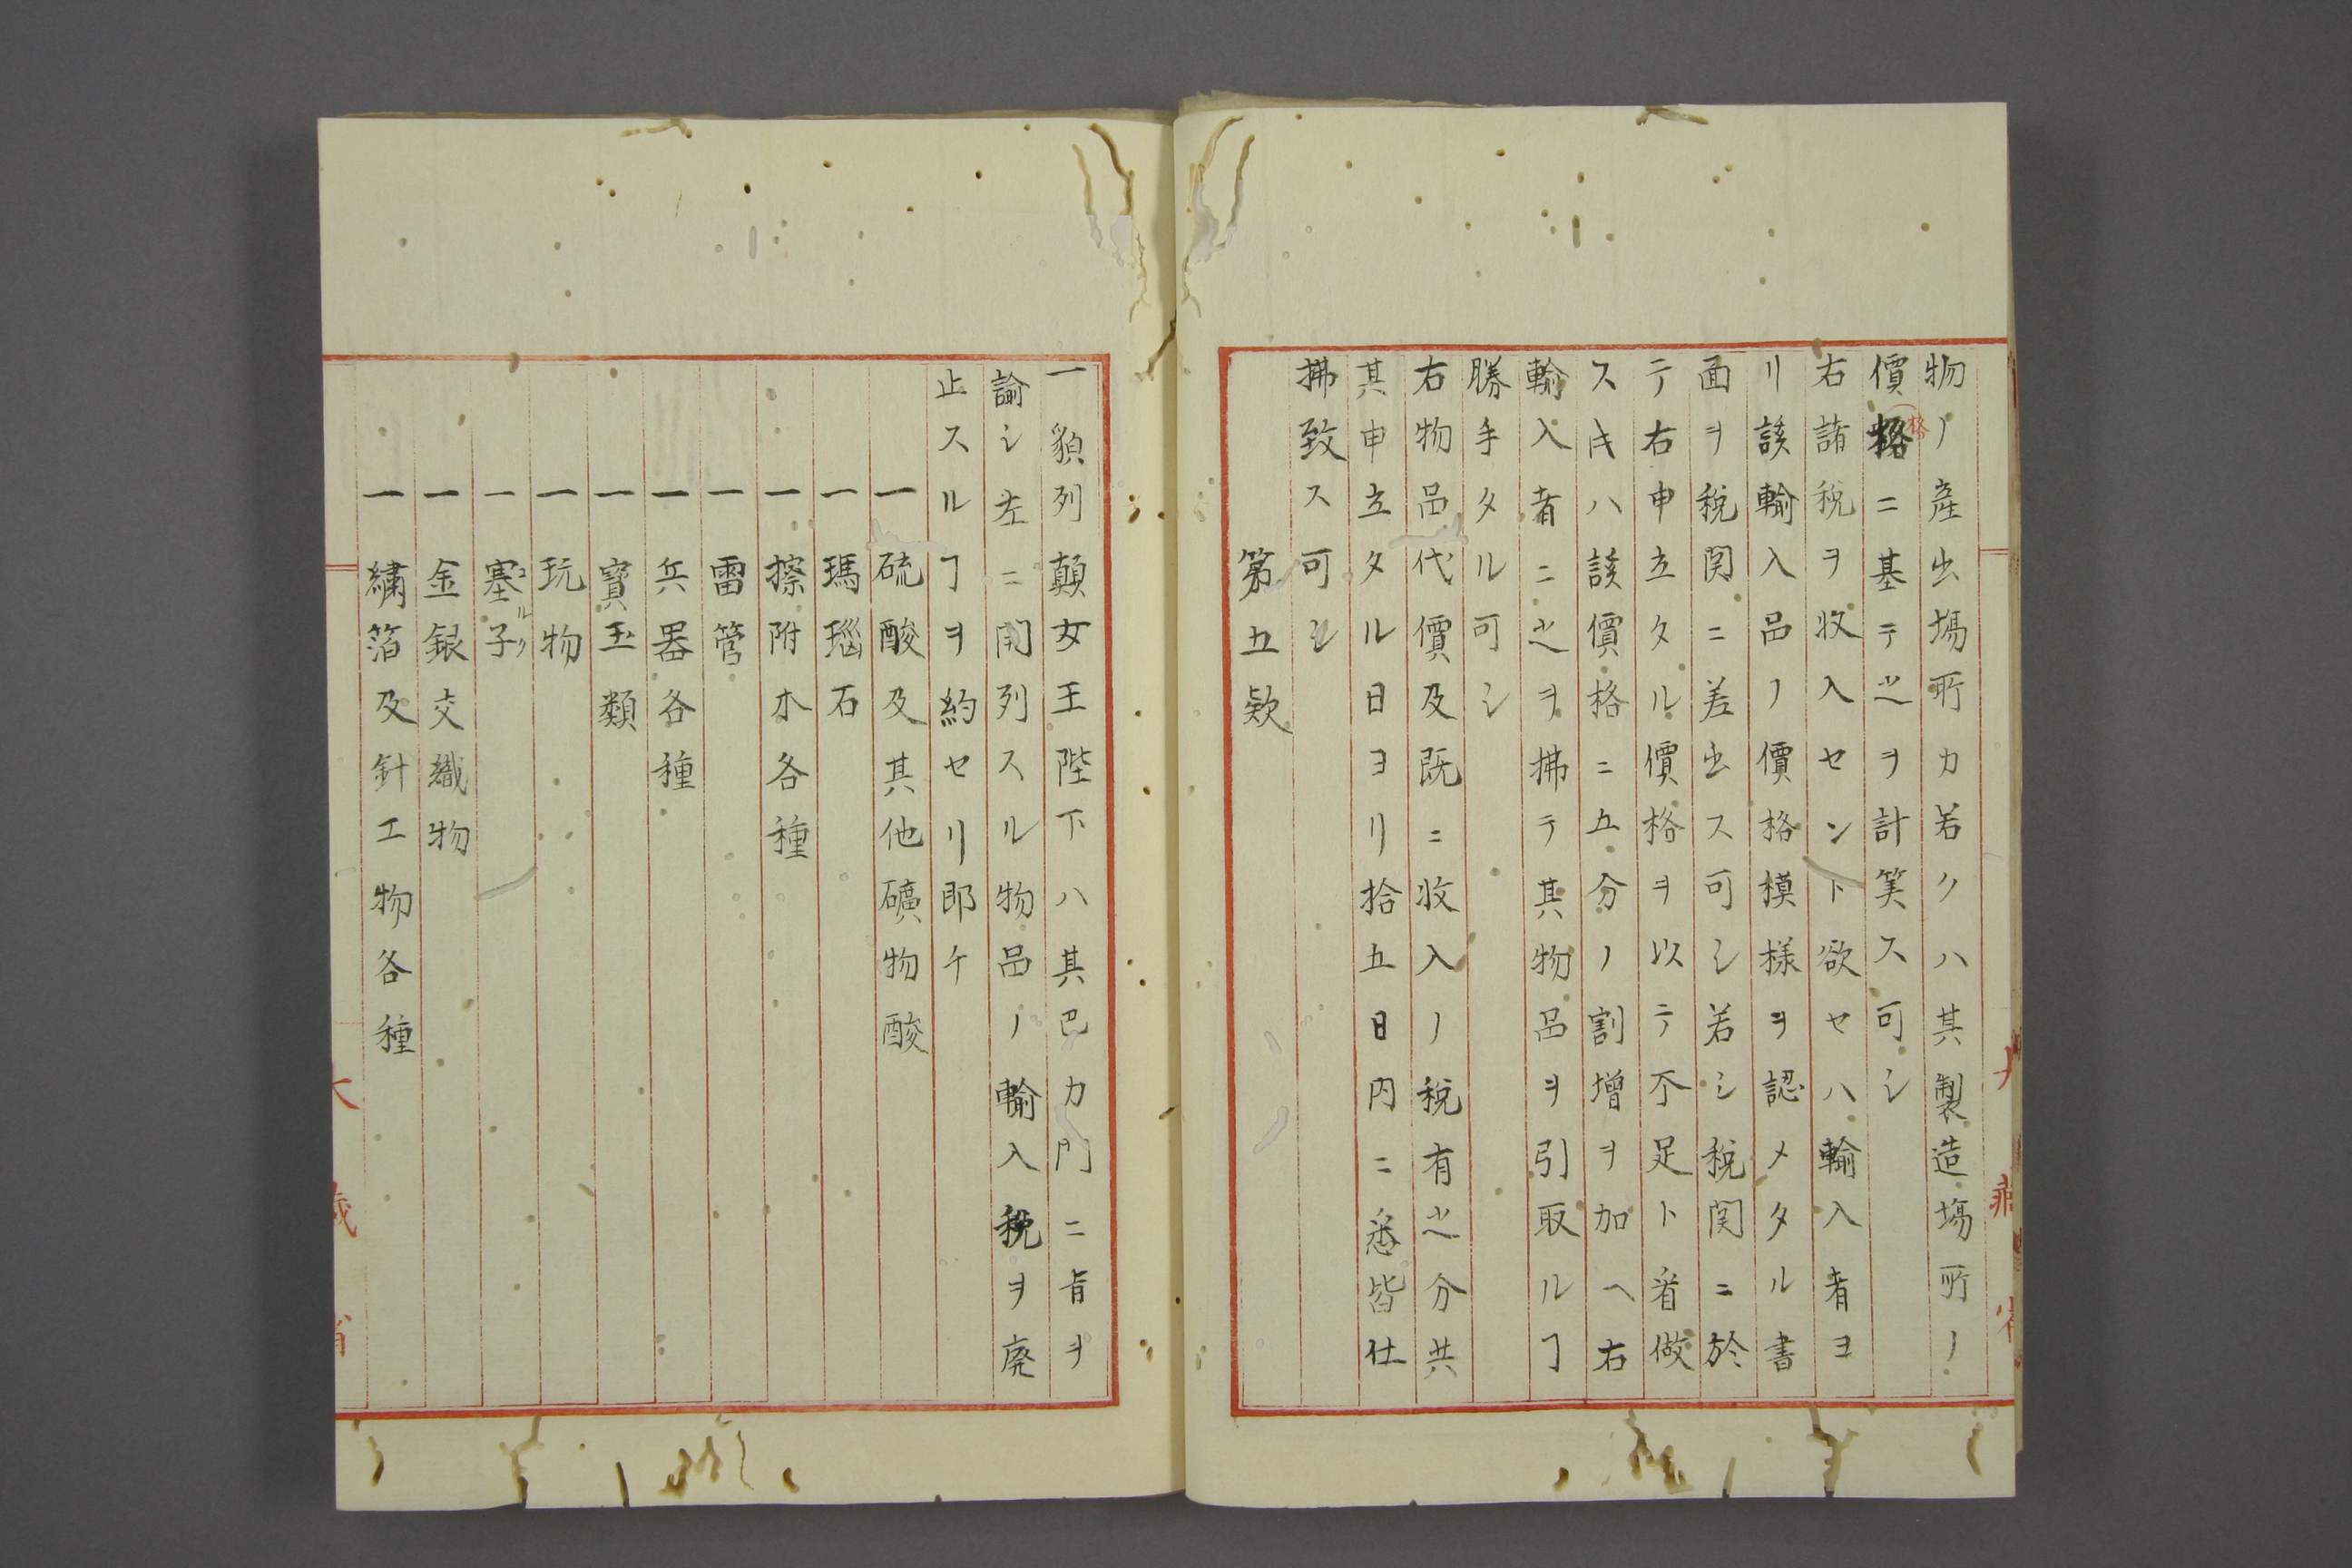 物ノ産出場所カ若クハ其製造場所ノ
價格ニ基テ之ヲ計筭ス可シ
格
右諸税ヲ收入セント欲セハ輸入者ヨ
リ該輸入品ノ價格模様ヲ認メタル書
面ヲ税関ニ差出ス可シ若シ税関ニ於
テ右申立タル價格ヲ以テ不足ト看做
スキハ該價格ニ五分ノ割増ヲ加ヘ右
輸入者ニ之ヲ拂テ其物品ヲ引取ルヿ
勝手タル可シ
右物品代價及既ニ收入ノ税有之分共
其申立タル日ヨリ拾五日内ニ悉皆仕
拂致ス可シ
第五欵
一貌列顛女王陛下ハ其巴力門ニ旨ヲ
諭シ左ニ開列スル物品ノ輸入税ヲ廃
止スルヿヲ約セリ即ケ
一硫酸及其他礦物酸
一瑪瑙石
一擦附木各種
一雷管
一兵器各種
一寶玉類
一玩物
一塞子
コルク
一金銀交織物
一繍箔及針工物各種
大藏省